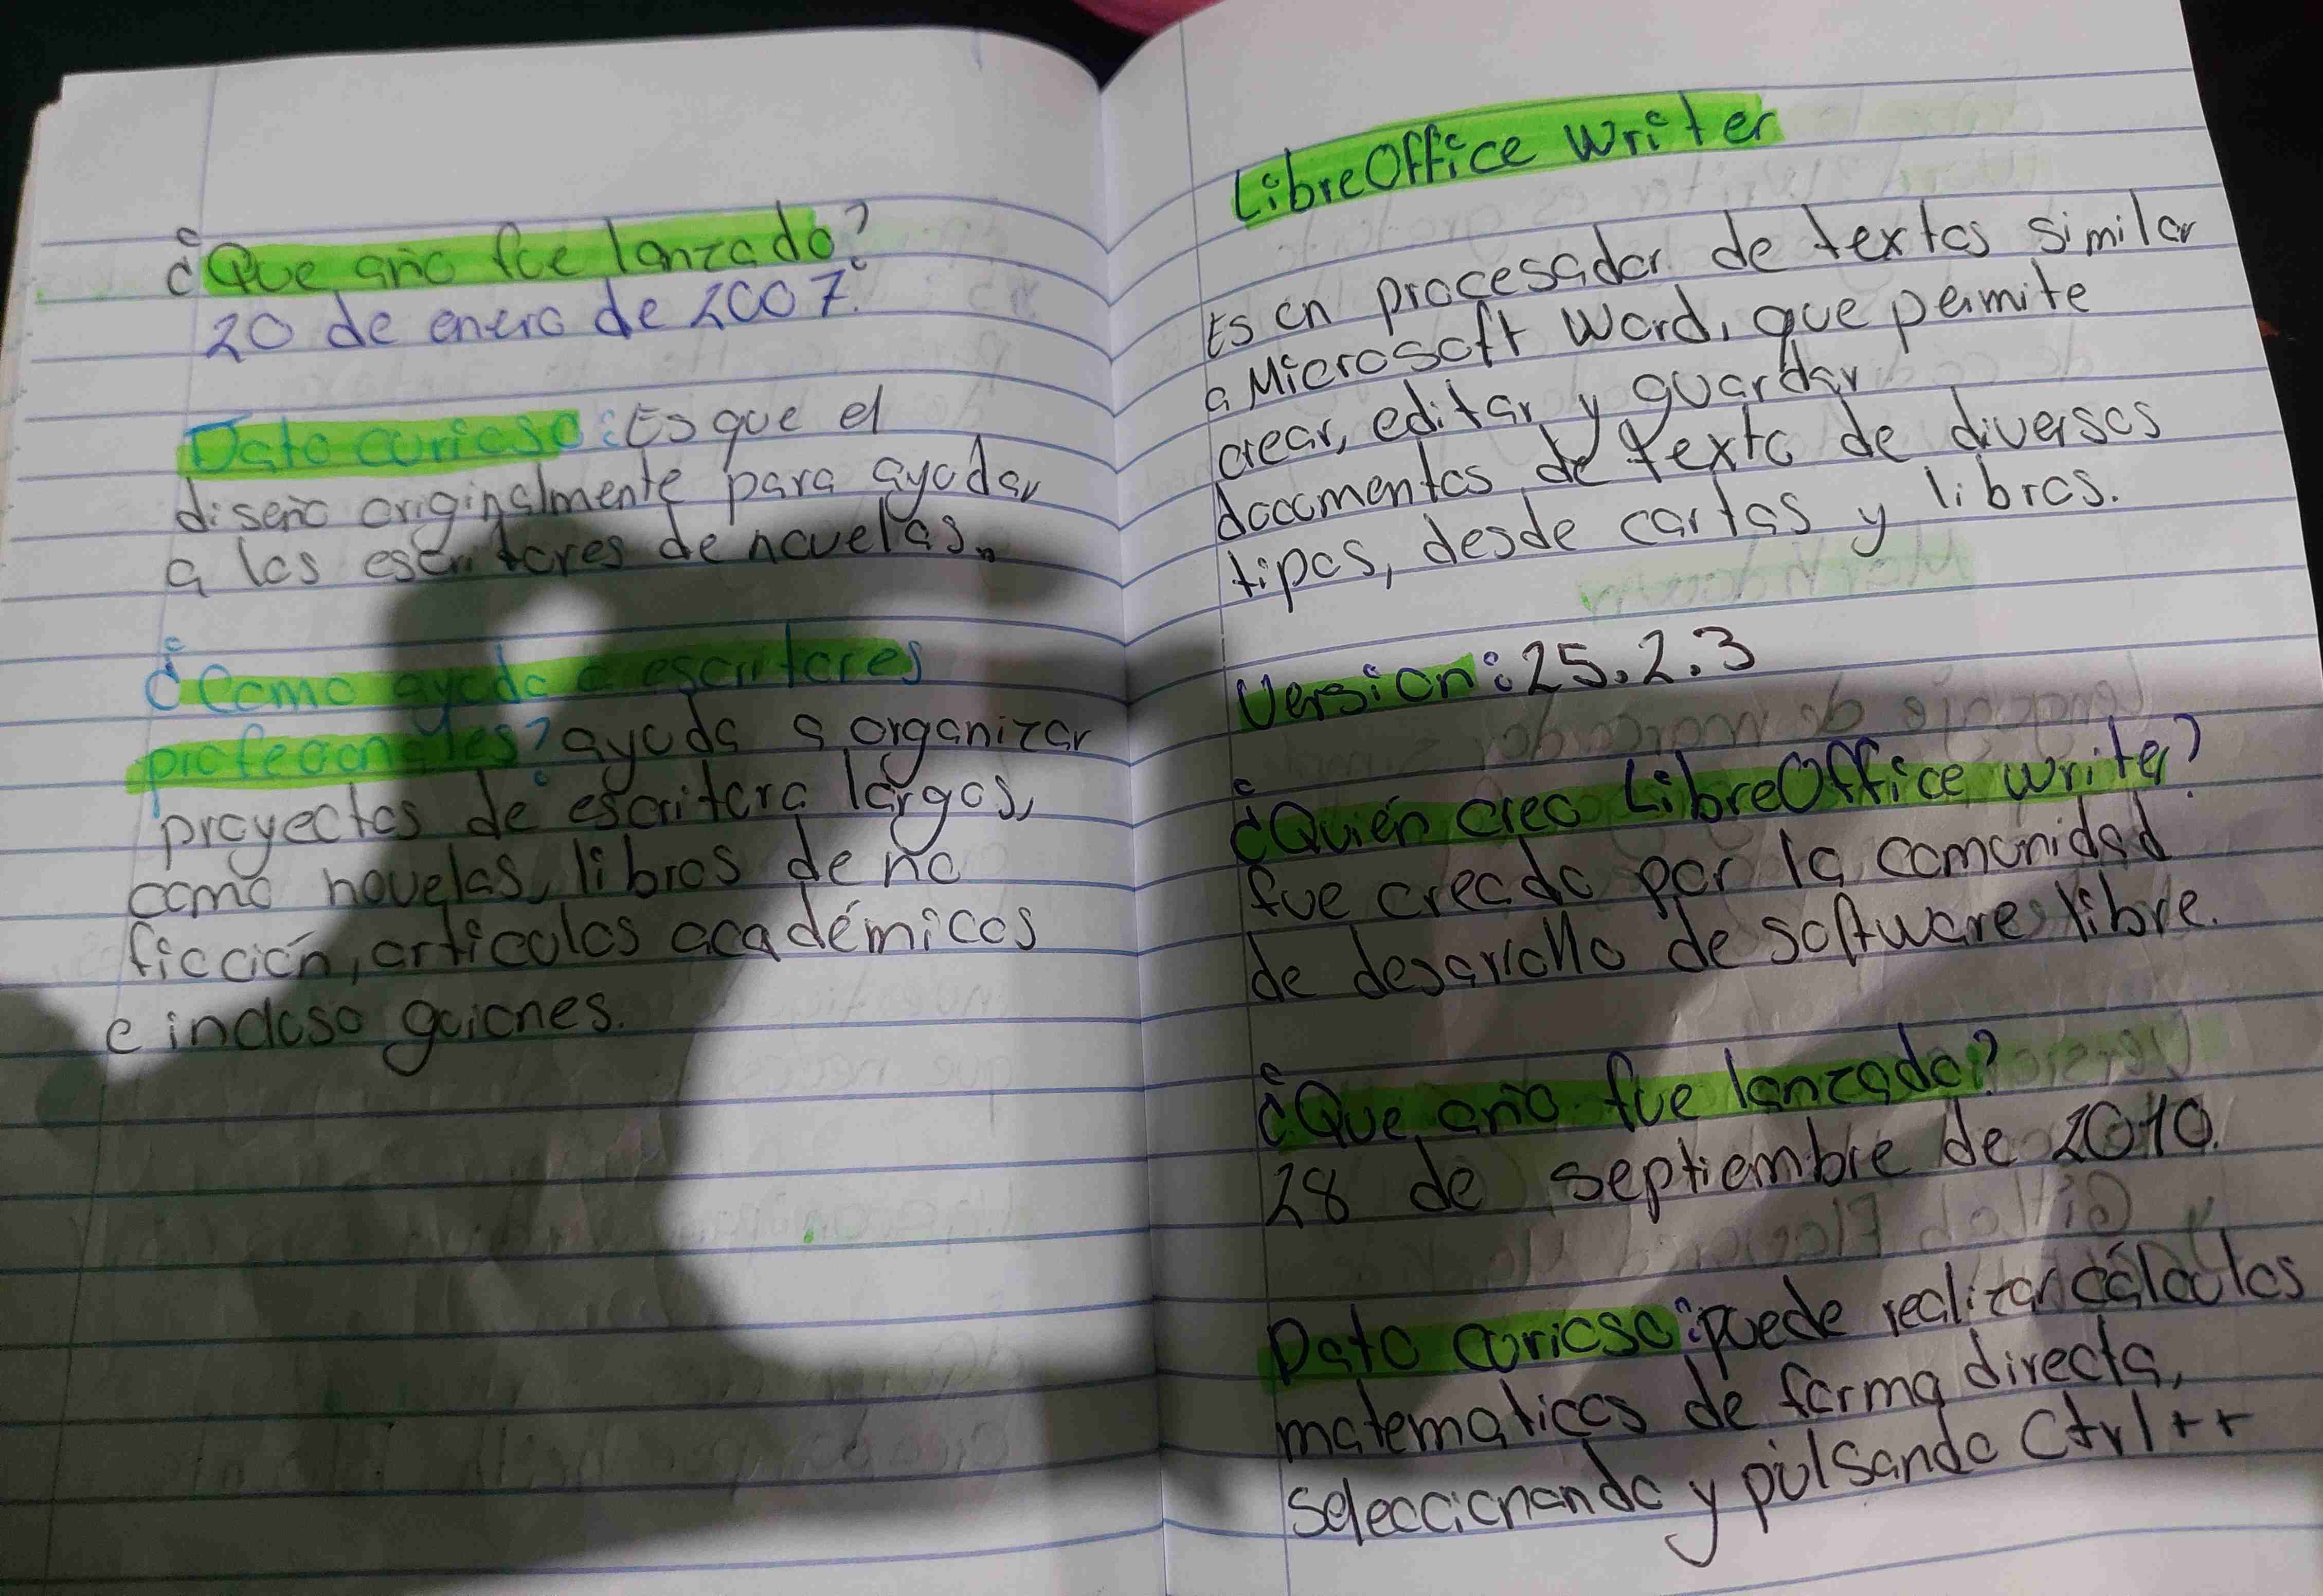 ¿Que año fue lanzado?
20 de enero de 2007.
Dato curioso: Es que el
diseño originalmente para ayudar
a los escritores de novelas.
¿Como ayuda a escritores
profecionales? ayuda a organizar
proyectos de escritura largos,
como novelas, libros de no
ficción, artículos académicos
e incluso guiones.
LibreOffice Writer
Es un procesador de textos similar
a Microsoft Word, que permite
crear, editar y guardar
documentos de texto de diversos
tipos, desde cartas y libros.
Version: 25.2.3
¿Quién creo LibreOffice writer?
fue creado por la comunidad
de desarrollo de software libre.
¿Que año fue lanzado?
28 de septiembre de 2010.
Dato curioso: puede realizar cálculos
matematicos de forma directa,
seleccionando y pulsando Ctrl++